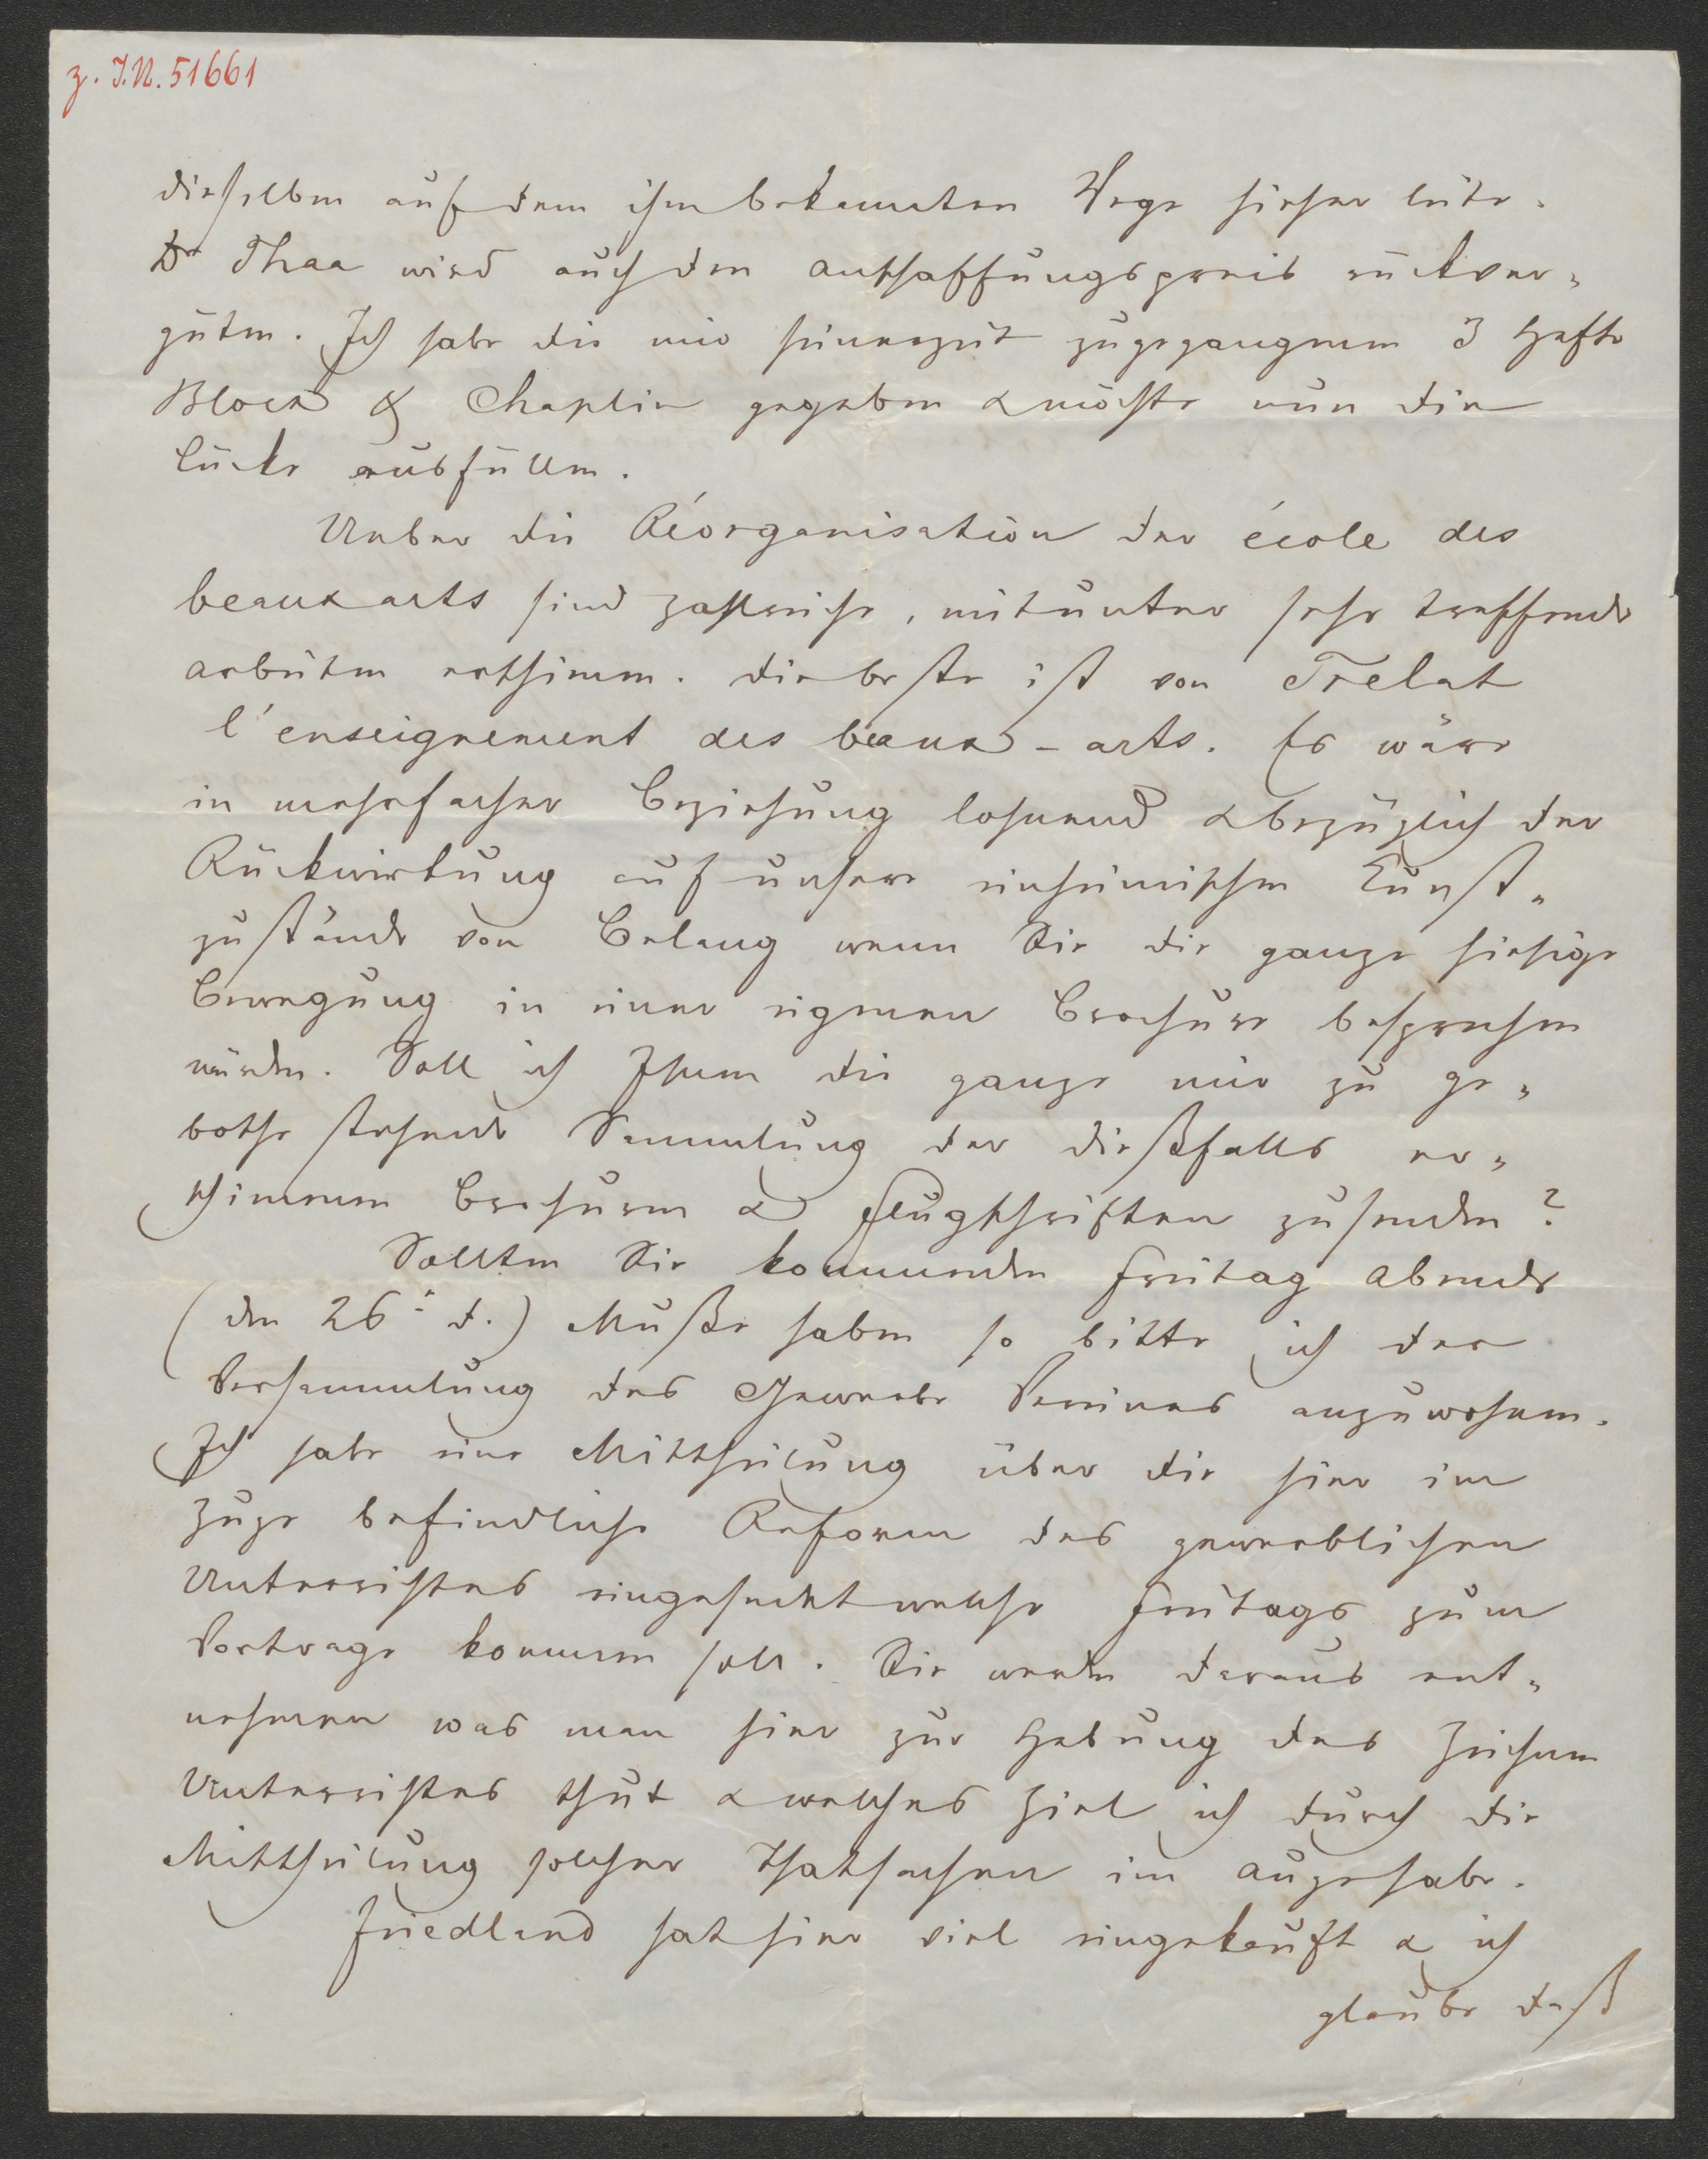 z. I.N. 51661
dieselben auf dem ihm bekannten Wege hieher leite.
Dr Thaa wird auch den Anschaffungspreis rückver-
güten. Ich habe die mir seinerzeit zugegangenen 3 Hefte
Block & Chaplin gegeben & möchte nun die
Lücke ausfüllen.
Ueber die Réorganisation der école des
beaux arts sind zahlreiche, mitunter sehr treffende
Arbeiten erschienen. Die beste ist von Trelat
l'enseignement des beaux-arts. Es wäre
in mehrfacher Beziehung lohnend & bezüglich der
Rückwirkung auf unsere einheimischen Kunst-
zustände von Belang wenn Sie die ganze hiesige
Bewegung in einer eigenen Brochure besprechen
würden. Soll ich Ihnen die ganze mir zu ge-
bothe stehende Sammlung der dießfalls er-
schienenen Brochuren & Flugschriften zusenden?
Sollten Sie kommenden Freitag Abends
(den 26t d.) Muße haben so bitte ich der
Versammlung des Gewerbe Vereines anzuwohnen.
Ich habe eine Mittheilung über die hier im
Zuge befindliche Reform des gewerblichen
Unterrichtes eingesendet welche Freitags zum
Vortrage kommen soll. Sie werden daraus ent-
nehmen was man hier zur Hebung des Zeichnen
Unterrichtes thut & welches Ziel ich durch die
Mittheilung solcher Thatsachen im Auge habe.
Friedland hat hier viel eingekauft & ich
glaube daß